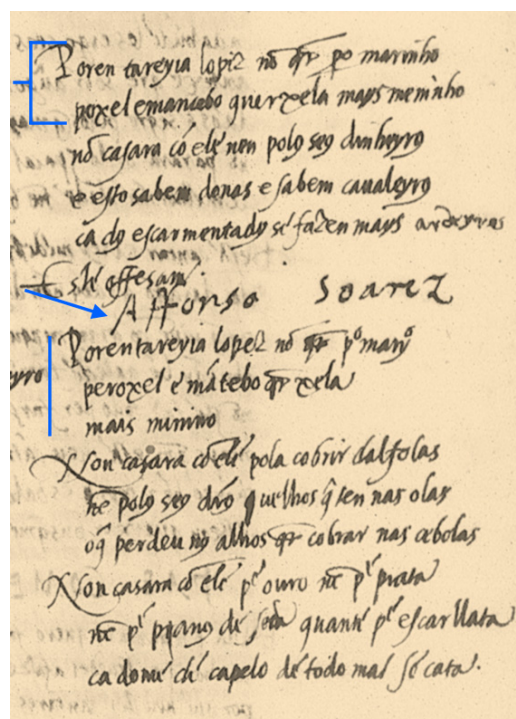 Poren tareyia lopiz nõ qr̃ po marinho
poxel emancebo querxela mays meninho
nõ casara cõ ele nen polo sey dinheyro
e esto sabem donas e sabem caualeyro
ca do escarmentado se fazen mays
Affonso Soarez
Porentareyia lopez nõ qr̃ pº maryº
peroxel e mãtebo qr̃ xela
mais minino
Non casara cõ ele pola cobrir dalfolas
nẽ polo sey dr̃o quelhos q̃ ten nas olas
oq̃ perdeu nos alhos qr̃ cobrar nas cebolas
Non casara cõ ele pr̃ ouro nẽ pr̃ prata
nẽ pr̃ panos de seda quante pr̃ escarllata
ca donu capelo de todo mal se cata.